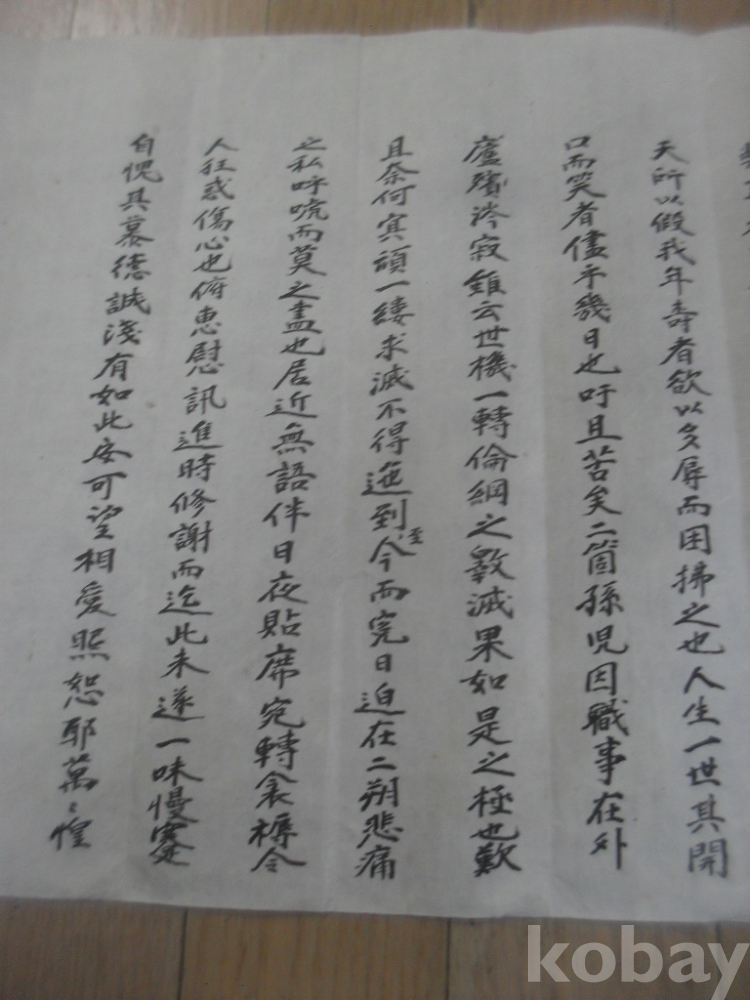 天所以假我年壽者欲以多辱而困拂之也人生一世其開
口而笑者儘乎幾日也吁且苦矣二箇孫児因職事在外
廬殯涔寂雖云世機一轉倫綱之斁滅果如是之極也歎
且奈何寅頑一縷求滅不得迤到至今而窆日迫在二朔悲痛
之私呼唬而莫之盡也居近無語伴日夜貼席宛轉衾褥令
人狂惑傷心也俯惠慰訊進時修謝而迄此未遂一味慢蹇
自愧其慕德誠淺有如此安可望相愛照恕耶萬〻惶
kobay